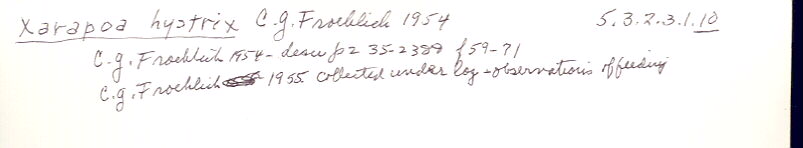 Xarapoa hystrix C.g. Froehlich 1954 5.3.2.3.1.10
C.g. Froehlich 1954 - descr p 235-238 f 59-71
C.g. Froehlich 1955 collected under log - observations of feeding